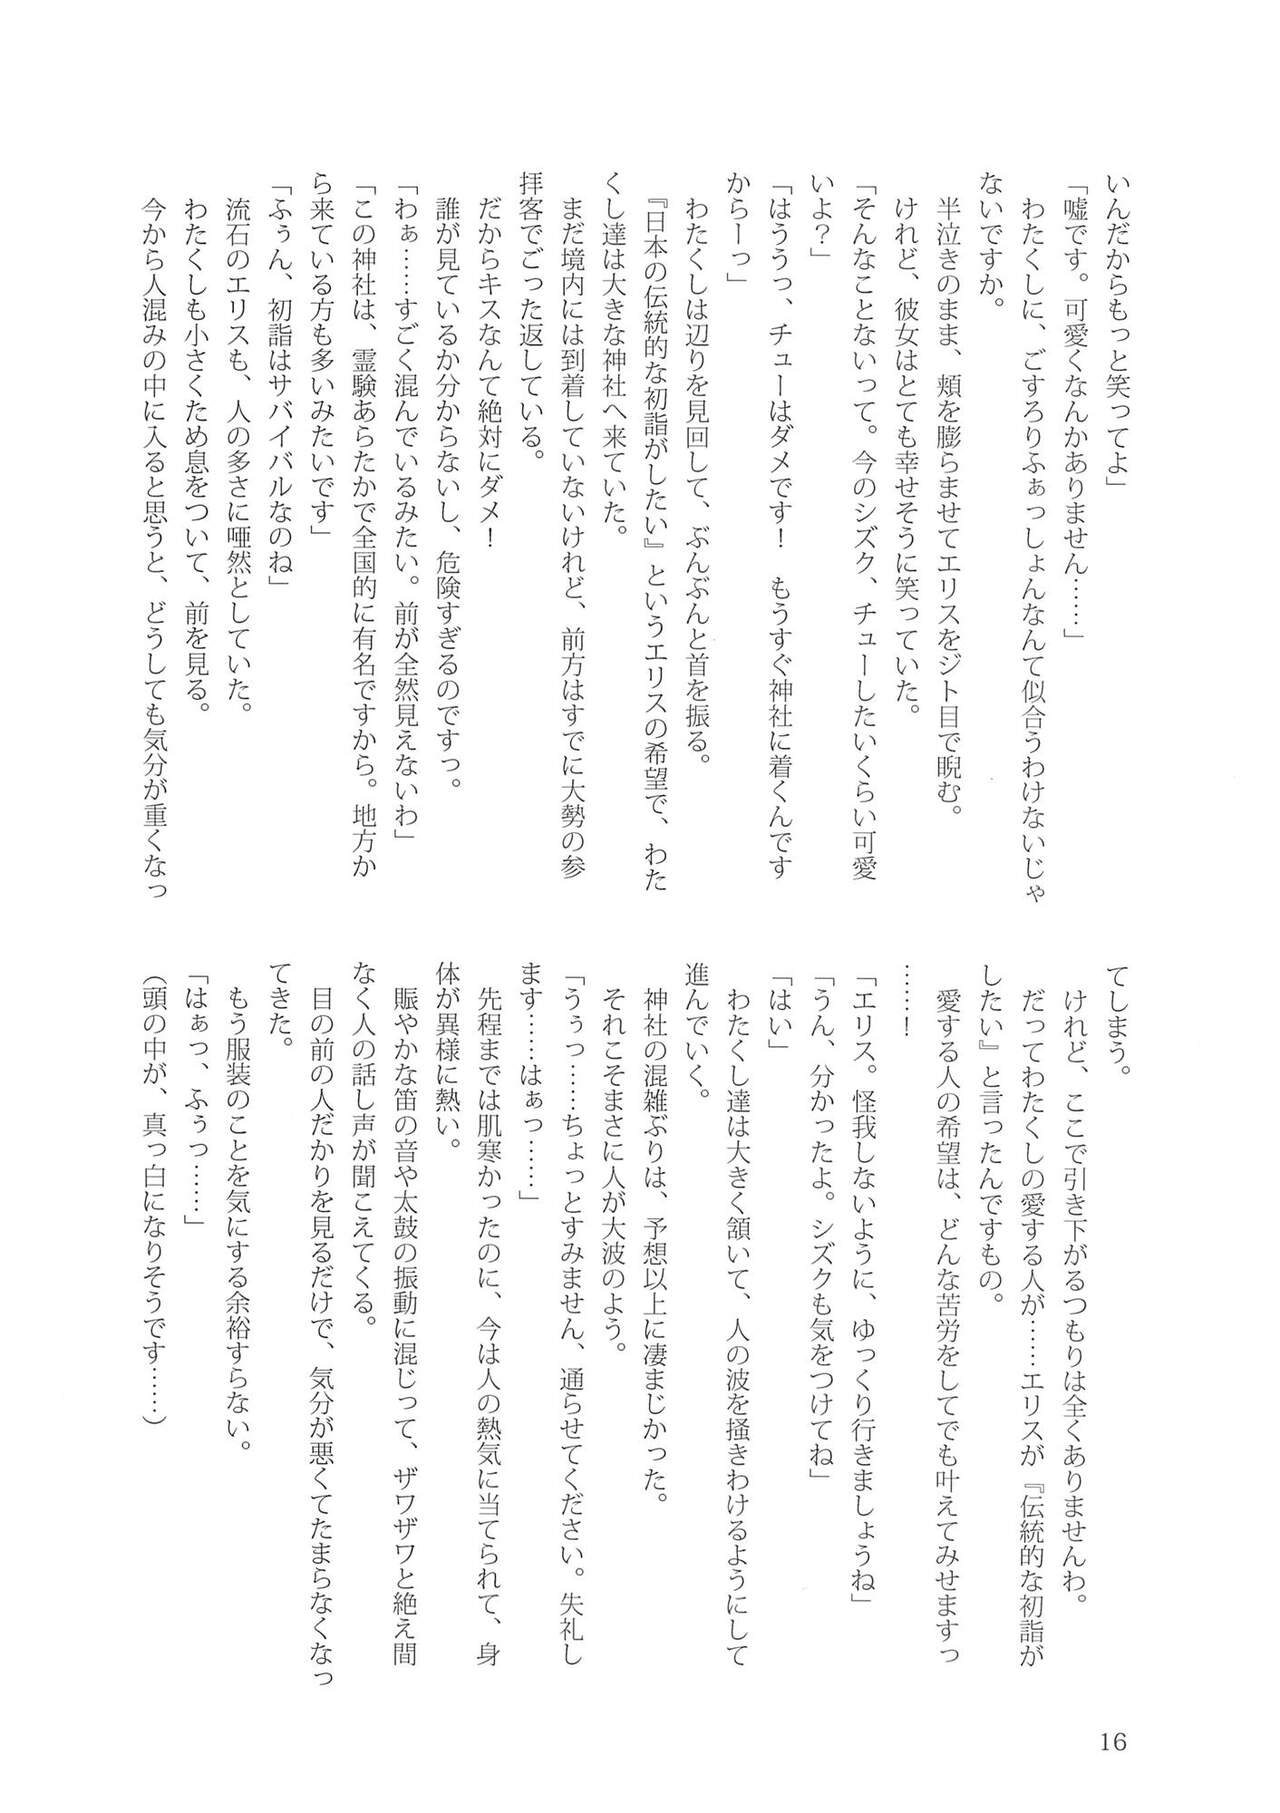 いんだからもっと笑ってよ」
「嘘です。可愛くなんかありません……」
　わたくしに、ごすろりふぁっしょんなんて似合うわけないじゃ
ないですか。
　半泣きのまま、頬を膨らませてエリスをジト目で睨む。
　けれど、彼女はとても幸せそうに笑っていた。
「そんなことないって。今のシズク、チューしたいくらい可愛
いよ？」
「はううっ、チューはダメです！　もうすぐ神社に着くんです
からーっ」
　わたくしは辺りを見回して、ぶんぶんと首を振る。
　『日本の伝統的な初詣がしたい』というエリスの希望で、わた
くし達は大きな神社へ来ていた。
　まだ境内には到着していないけれど、前方はすでに大勢の参
拝客でごった返している。
　だからキスなんて絶対にダメ！
　誰が見ているか分からないし、危険すぎるのですっ。
「わぁ……すごく混んでいるみたい。前が全然見えないわ」
「この神社は、霊験あらたかで全国的に有名ですから。地方か
ら来ている方も多いみたいです」
「ふぅん、初詣はサバイバルなのね」
　流石のエリスも、人の多さに唖然としていた。
　わたくしも小さくため息をついて、前を見る。
　今から人混みの中に入ると思うと、どうしても気分が重くなっ
てしまう。
　けれど、ここで引き下がるつもりは全くありませんわ。
　だってわたくしの愛する人が……エリスが『伝統的な初詣が
したい』と言ったんですもの。
　愛する人の希望は、どんな苦労をしてでも叶えてみせますっ
……！
「エリス。怪我しないように、ゆっくり行きましょうね」
「うん、分かったよ。シズクも気をつけてね」
「はい」
　わたくし達は大きく頷いて、人の波を掻きわけるようにして
進んでいく。
　神社の混雑ぶりは、予想以上に凄まじかった。
　それこそまさに人が大波のよう。
「うぅっ……ちょっとすみません、通らせてください。失礼し
ます……はぁっ……」
　先程までは肌寒かったのに、今は人の熱気に当てられて、身
体が異様に熱い。
　賑やかな笛の音や太鼓の振動に混じって、ザワザワと絶え間
なく人の話し声が聞こえてくる。
　目の前の人だかりを見るだけで、気分が悪くてたまらなくなっ
てきた。
　もう服装のことを気にする余裕すらない。
「はぁっ、ふぅっ……」
（頭の中が、真っ白になりそうです……）
16